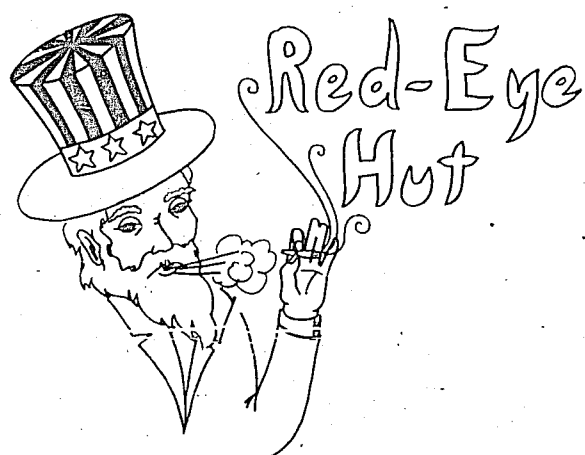 Red-Eye
Hut